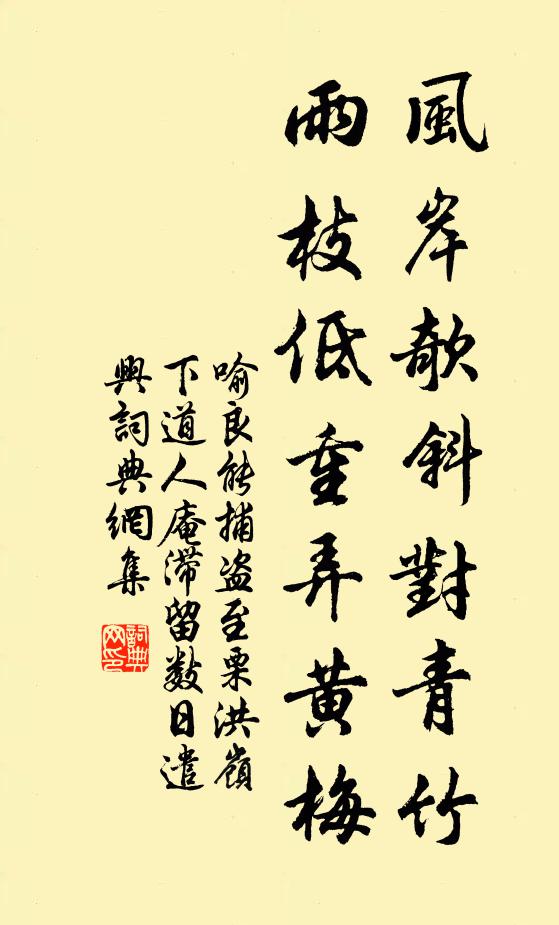 風岸欹斜對青竹
雨枝低重弄黃梅
喻良能捕盗至栗洪嶺
下道人庵滞留数日遣
興詞典網集
詞典
网印